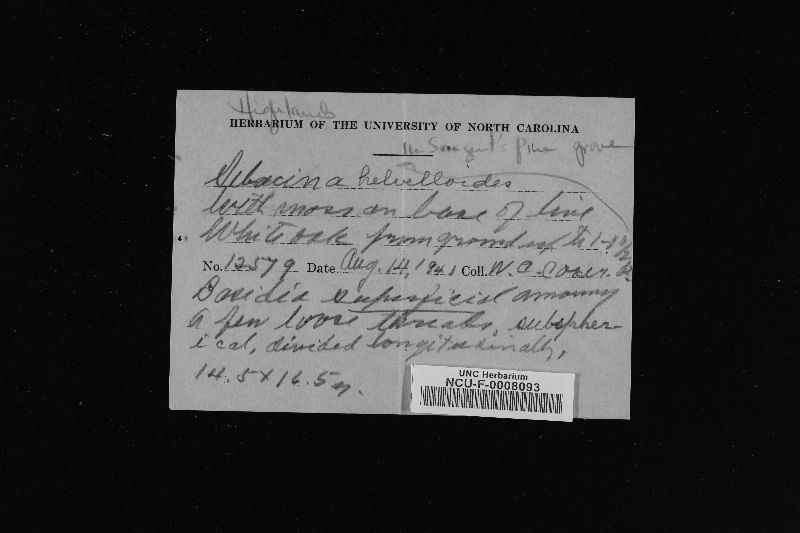 Highlands
HERBARIUM OF THE UNIVERSITY OF NORTH CAROLINA
in Sargent's pine grove
Sebacina helvelloides
with moss on base of live
White oak from ground up to 1-1 1/2 ft.
No. 12579 Date Aug. 14, 1941 Coll. W. C. Coker.
Basidia superficial among
a few loose threads, subspher-
ical, divided longitudinally,
14.5 x 16.5 μ.
UNC Herbarium
NCU-F-0008093